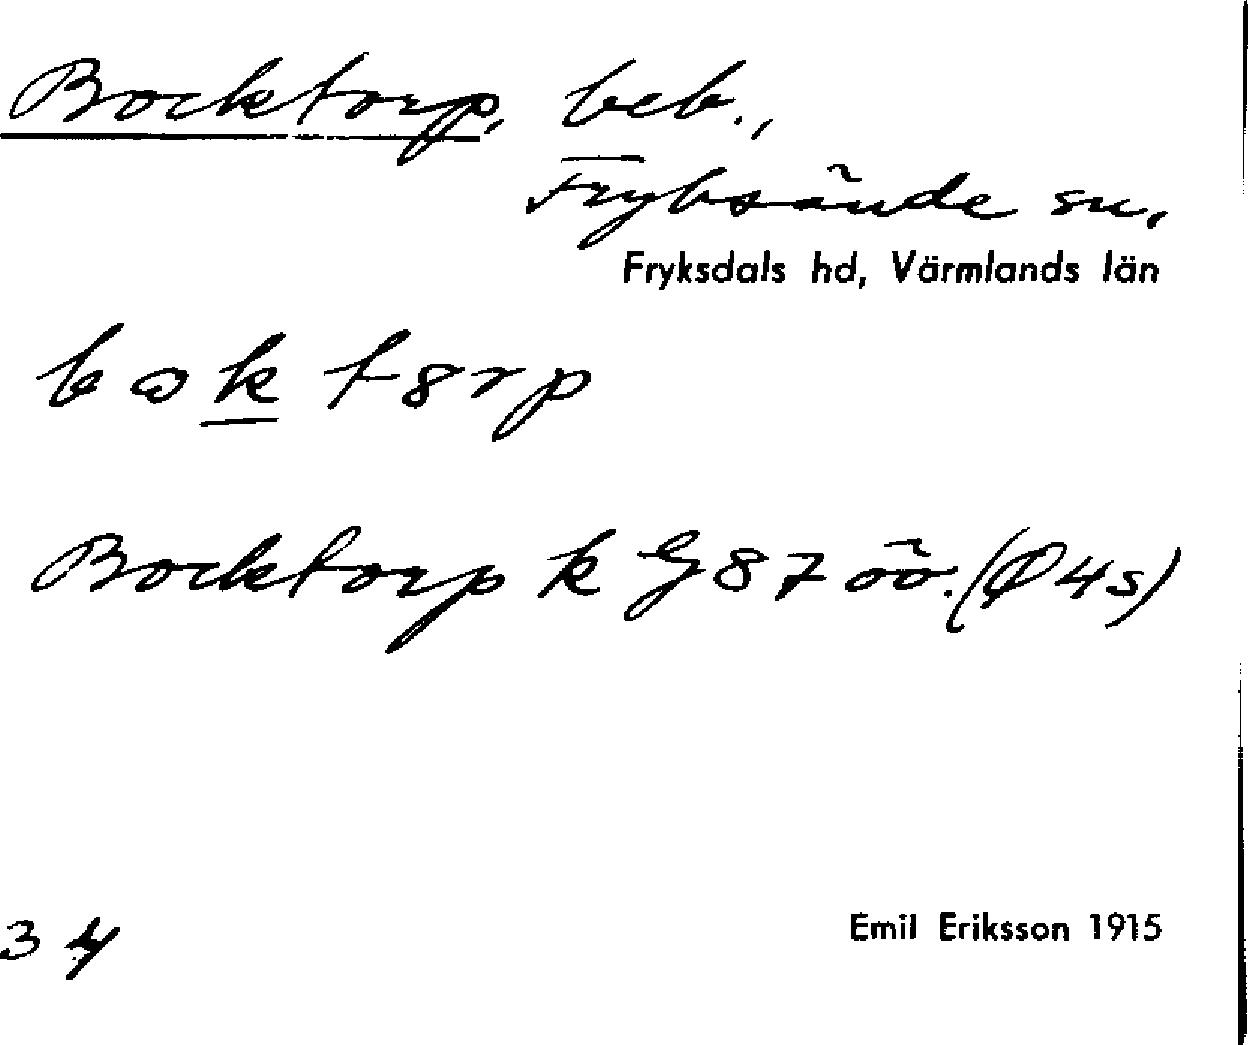 Bocktorp, beb.,
Fryksände sn.
Fryksdals hd, Värmlands län
bok t8rp
Bocktorp k G87 öö. (Ø4s)
34
Emil Eriksson 1915